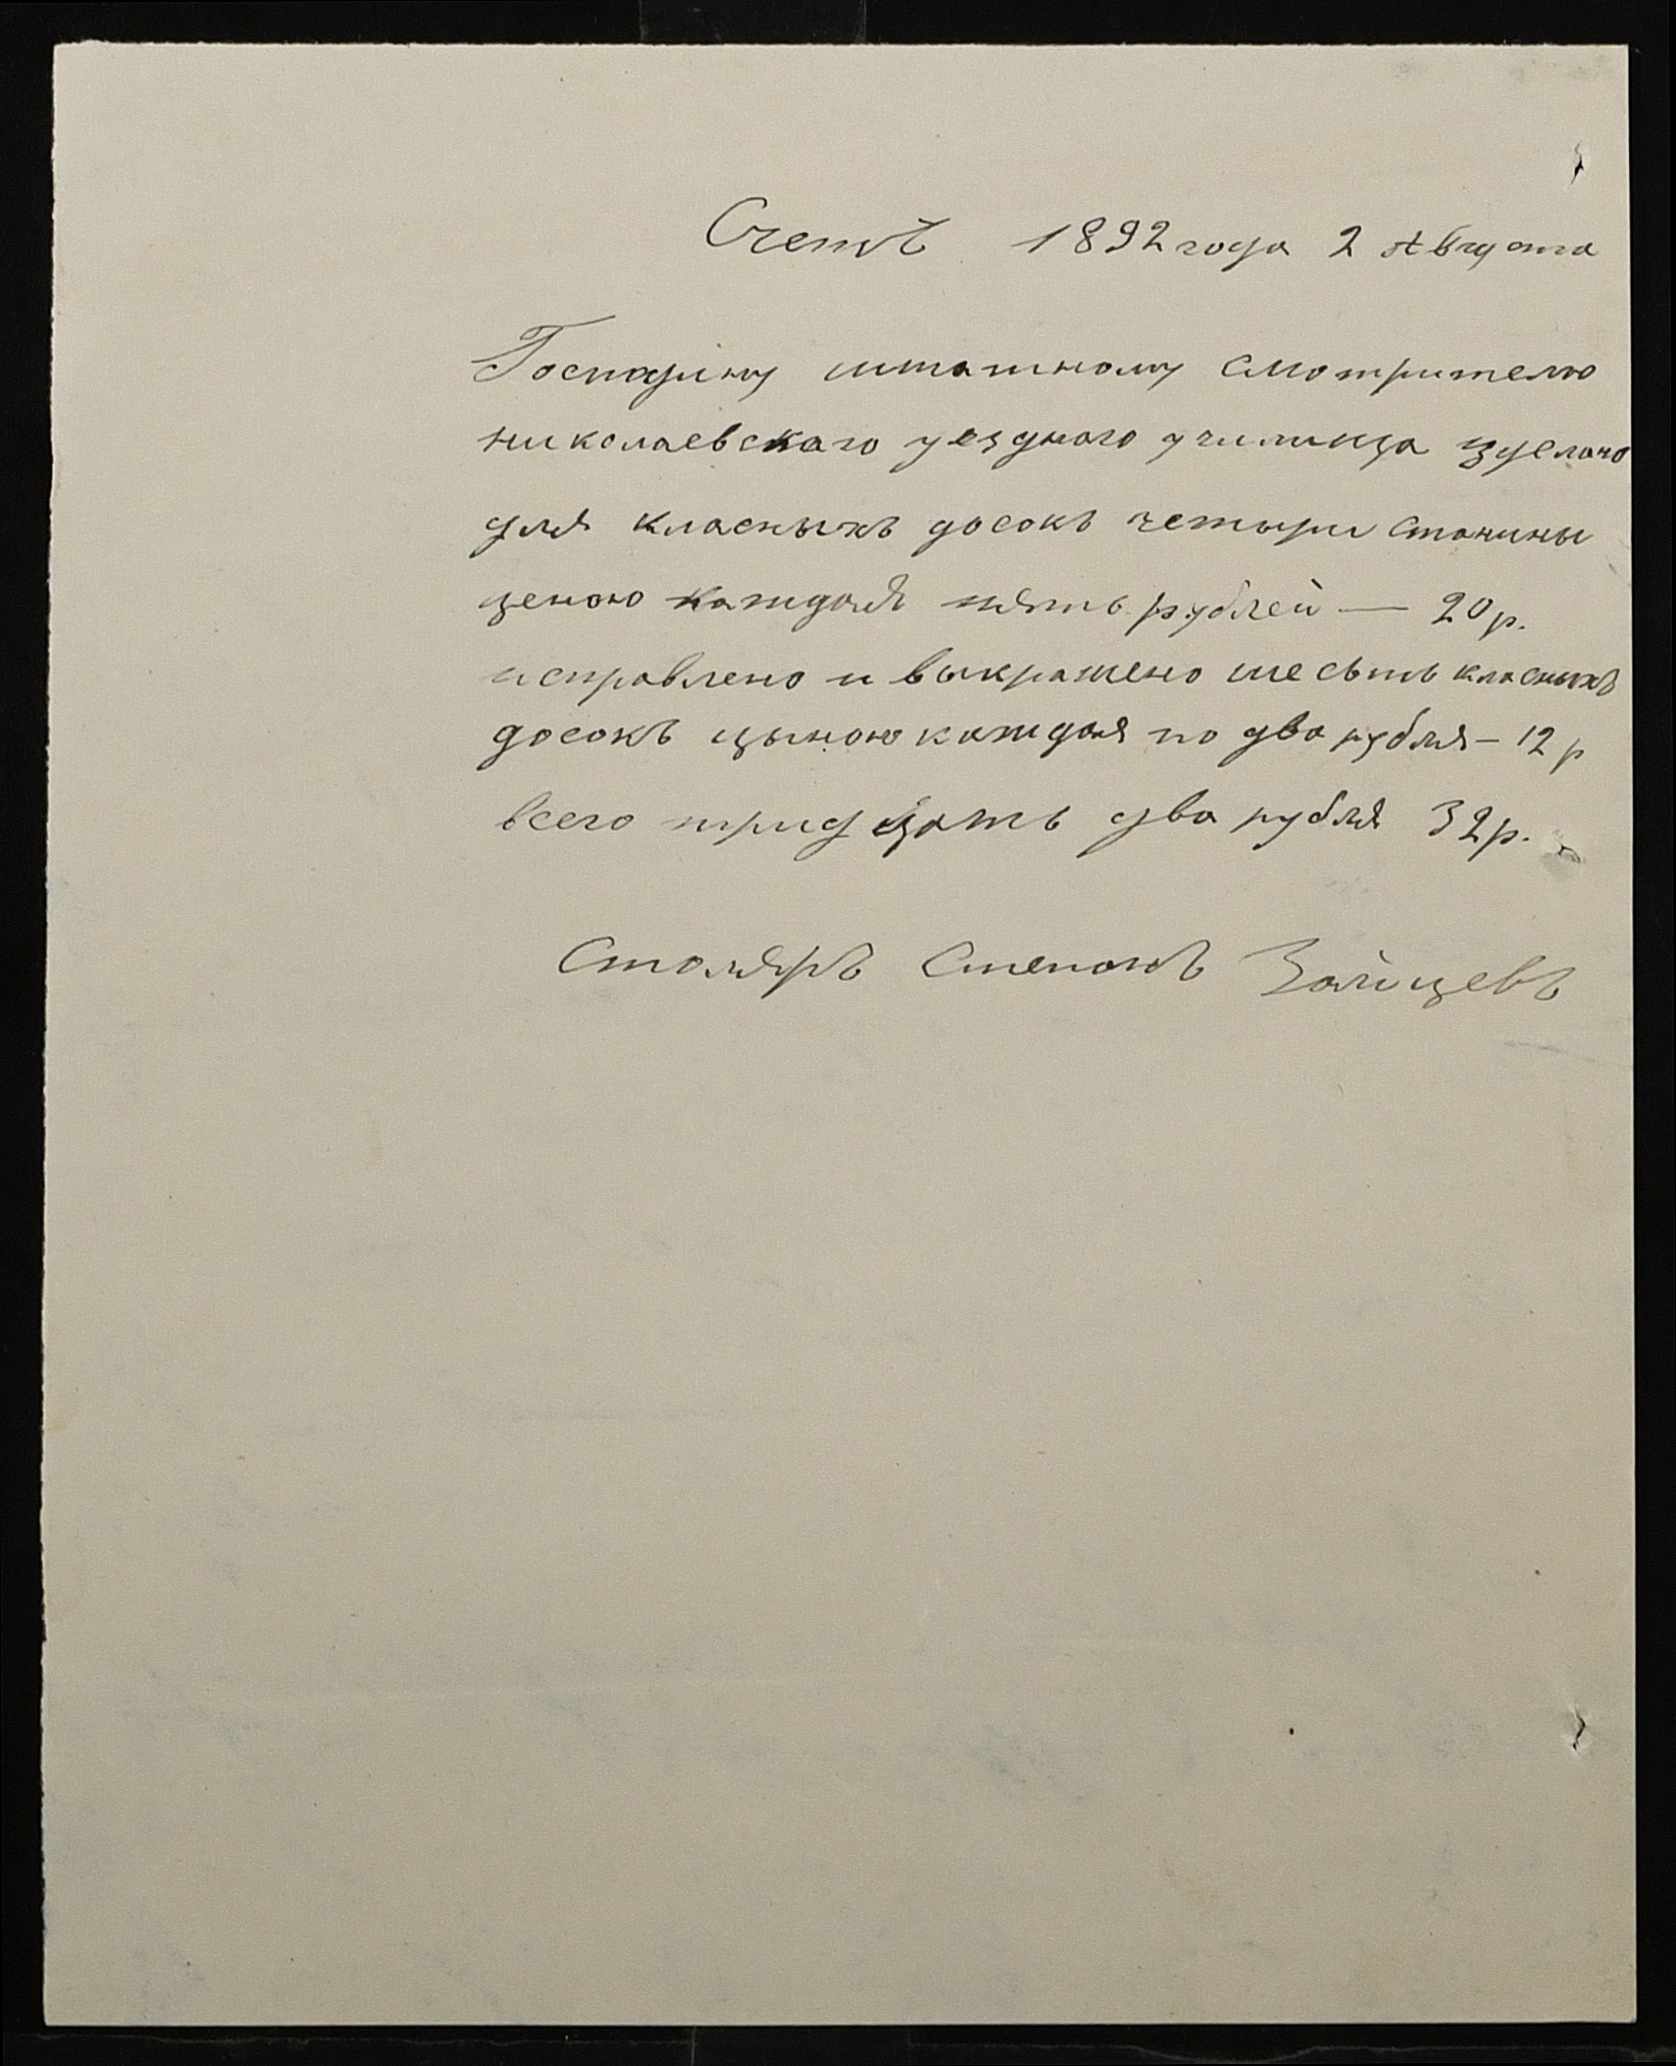 Счетъ 1892 года 2 Августа
Господину штатному смотрителю
николаевскаго уезднаго училища зделано
для класныхъ досокъ четыри станины
ценою каждая пять рублей — 20 р.
исправлено и выкрашено шесьть класныхъ
досокъ цыною каждая по два рубля – 12 р
всего тридцать два рубля 32 р.
Столяръ Степанъ Зайцевъ